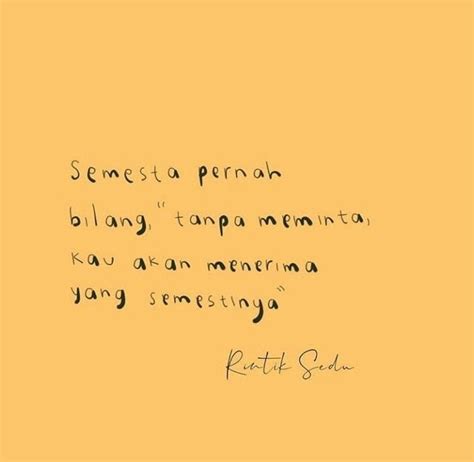 Semesta pernah
bilang, "tanpa meminta,
kau akan menerima
yang semestinya"
Rintik Sedu